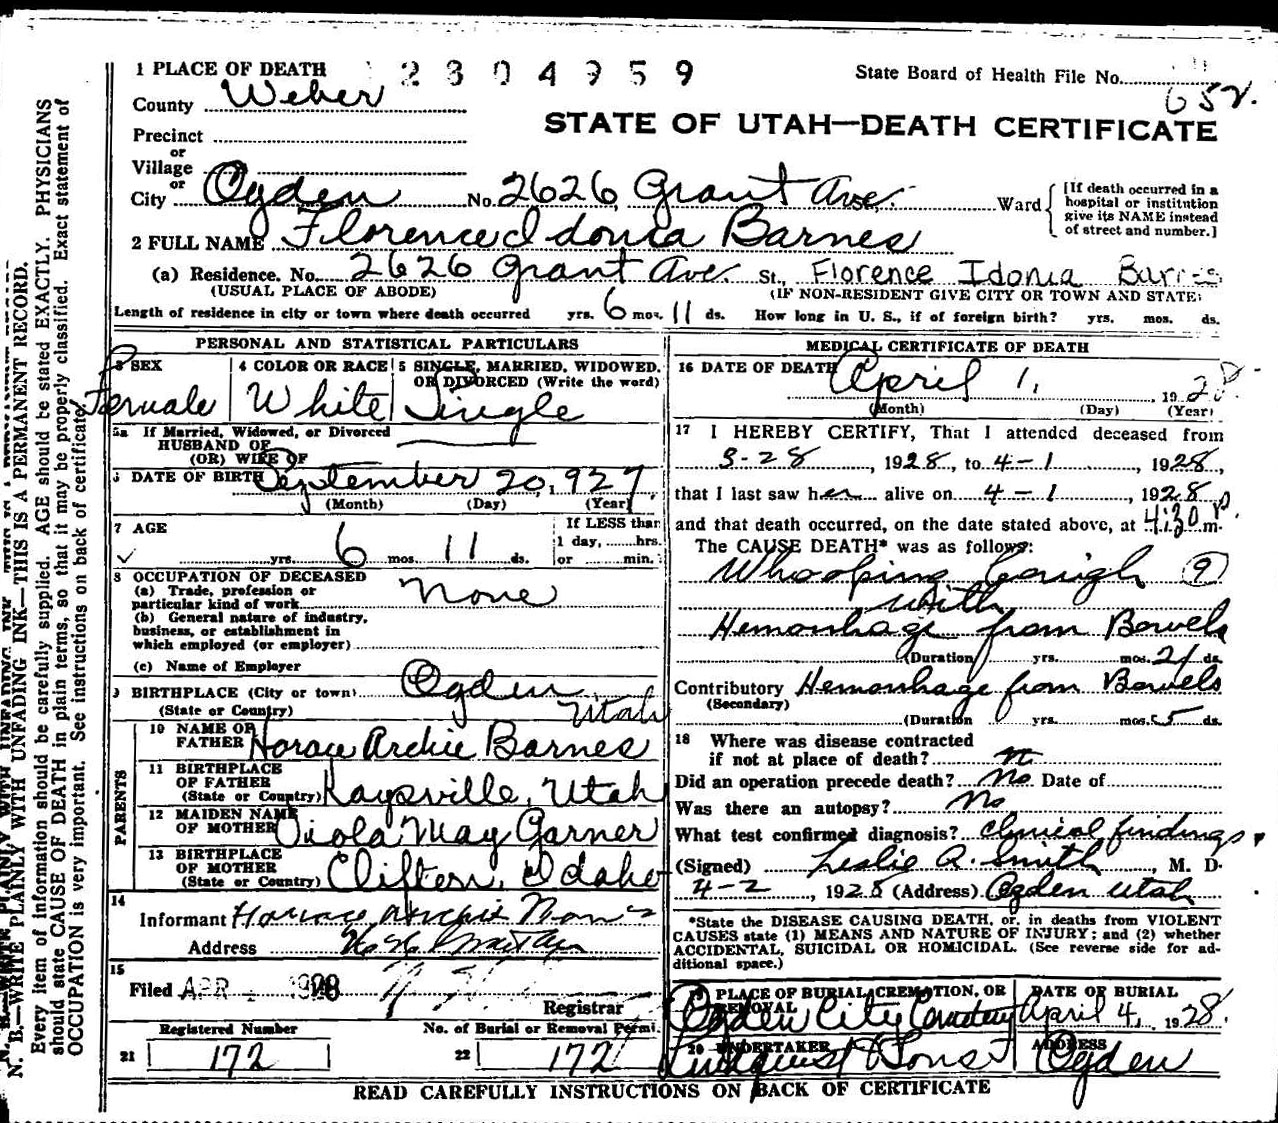 1 PLACE OF DEATH 2304959 State Board of Health File No. 652.
County Weber
STATE OF UTAH—DEATH CERTIFICATE
Precinct
or
Village
or
City Ogden No. 2626 Grant Ave. Ward [If death occurred in a hospital or institution give its NAME instead of street and number.]
2 FULL NAME Florence Idonia Barnes
(a) Residence. No. 2626 Grant Ave. St., Florence Idonia Barnes
(USUAL PLACE OF ABODE) (IF NON-RESIDENT GIVE CITY OR TOWN AND STATE)
Length of residence in city or town where death occurred yrs. 6 mos. 11 ds. How long in U. S., if of foreign birth? yrs. mos. ds.
PERSONAL AND STATISTICAL PARTICULARS
3 SEX
Female
4 COLOR OR RACE
White
5 SINGLE, MARRIED, WIDOWED,
OR DIVORCED (Write the word)
Single
5a If Married, Widowed, or Divorced
HUSBAND OF
(OR) WIFE OF
6 DATE OF BIRTH September 20, 1927
(Month) (Day) (Year)
7 AGE
yrs. 6 mos. 11 ds.
If LESS than
1 day, ......hrs.
or ......min.
8 OCCUPATION OF DECEASED
(a) Trade, profession or
particular kind of work None
(b) General nature of industry,
business, or establishment in
which employed (or employer)
(c) Name of Employer
9 BIRTHPLACE (City or town) Ogden
(State or Country) Utah
PARENTS
10 NAME OF
FATHER Horace Archie Barnes
11 BIRTHPLACE
OF FATHER
(State or Country) Kaysville, Utah
12 MAIDEN NAME
OF MOTHER Viola May Garner
13 BIRTHPLACE
OF MOTHER
(State or Country) Clifton, Idaho
14
Informant Horace Archie
Address
15
Filed APR 1928
Registrar
Registered Number
No. of Burial or Removal Permit
21 172
22 172
MEDICAL CERTIFICATE OF DEATH
16 DATE OF DEATH April 1, 1928
(Month) (Day) (Year)
17 I HEREBY CERTIFY, That I attended deceased from
3-28, 1928, to 4-1, 1928,
that I last saw her alive on 4-1, 1928
and that death occurred, on the date stated above, at 4:30 P. m.
The CAUSE DEATH* was as follows:
Whooping Cough 9
with
Hemorrhage from Bowels
(Duration yrs. mos. 21 ds.
Contributory Hemorrhage from Bowels
(Secondary)
(Duration yrs. mos. 5 ds.
18 Where was disease contracted
if not at place of death?
Did an operation precede death? No Date of
Was there an autopsy? No
What test confirmed diagnosis? Clinical findings.
(Signed) Leslie A. Smith, M. D.
4-2, 1928 (Address) Ogden Utah
*State the DISEASE CAUSING DEATH, or, in deaths from VIOLENT
CAUSES state (1) MEANS AND NATURE OF INJURY; and (2) whether
ACCIDENTAL, SUICIDAL OR HOMICIDAL. (See reverse side for ad-
ditional space.)
19 PLACE OF BURIAL, CREMATION, OR
REMOVAL
Ogden City Cemetery
DATE OF BURIAL
April 4, 1928.
20 UNDERTAKER
Lindquist & Sons
ADDRESS
Ogden
READ CAREFULLY INSTRUCTIONS ON BACK OF CERTIFICATE
N. B.—WRITE PLAINLY WITH UNFADING INK—THIS IS A PERMANENT RECORD.
Every item of information should be carefully supplied. AGE should be stated EXACTLY. PHYSICIANS
should state CAUSE OF DEATH in plain terms, so that it may be properly classified. Exact statement of
OCCUPATION is very important. See instructions on back of certificate.